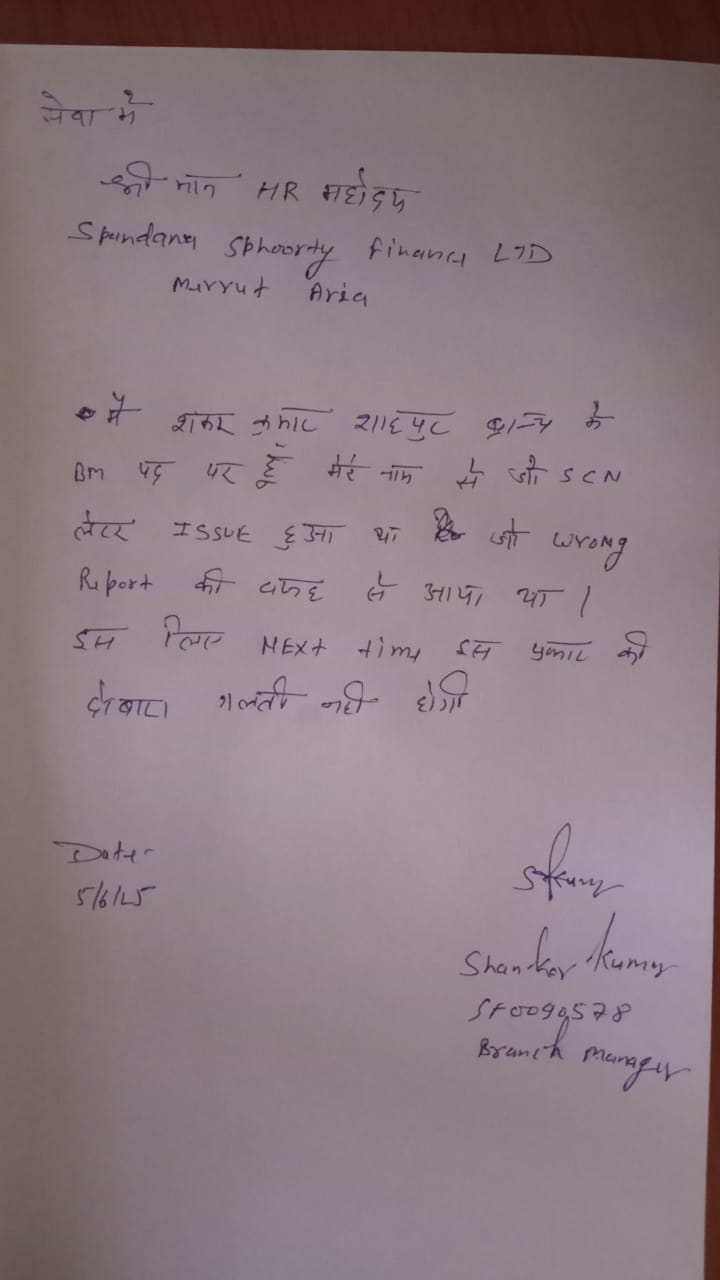 सेवा मे
श्री मान HR महोदय
Spandana Sphoorty Finance LTD
Merrut Aria
मै शंकर कुमार शाहपुर ब्रान्च मे
BM पद पर हूँ मेरे नाम से जो SCN
लेटर ISSUE हुआ था जो Wrong
Report की वजह से आया था।
इस लिए NEXt time इस प्रकार की
दोबारा गलती नही होगी
Date-
5/6/25
Shankar Kumar
SF0090578
Branch Manager